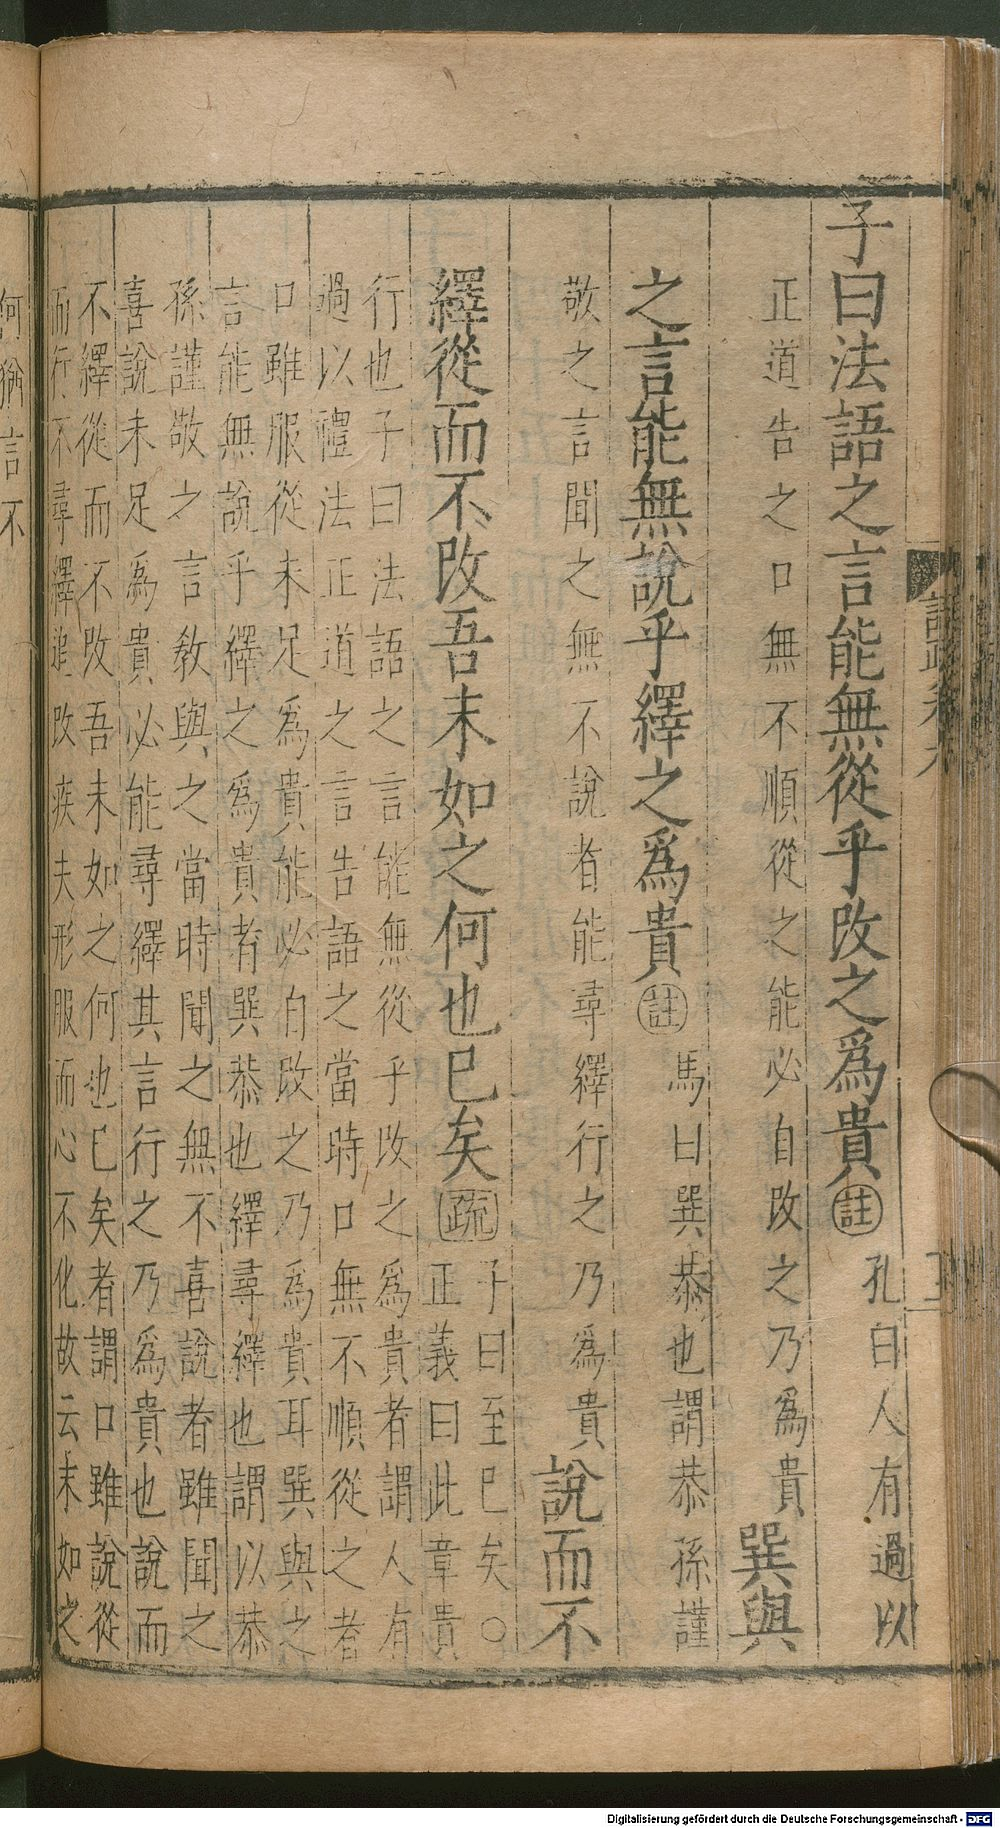 子曰法語之言能無從乎改之爲貴註孔曰人有過以
正道告之口無不順從之能必自改之乃爲貴巽與
之言能無說乎繹之爲貴註馬曰巽恭也謂恭孫謹
敬之言聞之無不說者能尋繹行之乃爲貴說而不
繹從而不改吾末如之何也已矣疏子曰至已矣○
正義曰此章貴
行也子曰法語之言能無從乎改之爲貴者謂人有
過以禮法正道之言告語之當時口無不順從之者
口雖服從未足爲貴能必自改之乃爲貴耳巽與之
言能無說乎繹之爲貴者巽恭也繹尋繹也謂以恭
孫謹敬之言教與之當時聞之無不喜說者雖聞之
喜說未足爲貴必能尋繹其言行之乃爲貴也說而
不繹從而不改吾末如之何也已矣者謂口雖說從
而行不尋繹追改疾夫形服而心不化故云末如之
何猶言不
Digitalisierung gefördert durch die Deutsche Forschungsgemeinschaft - DFG